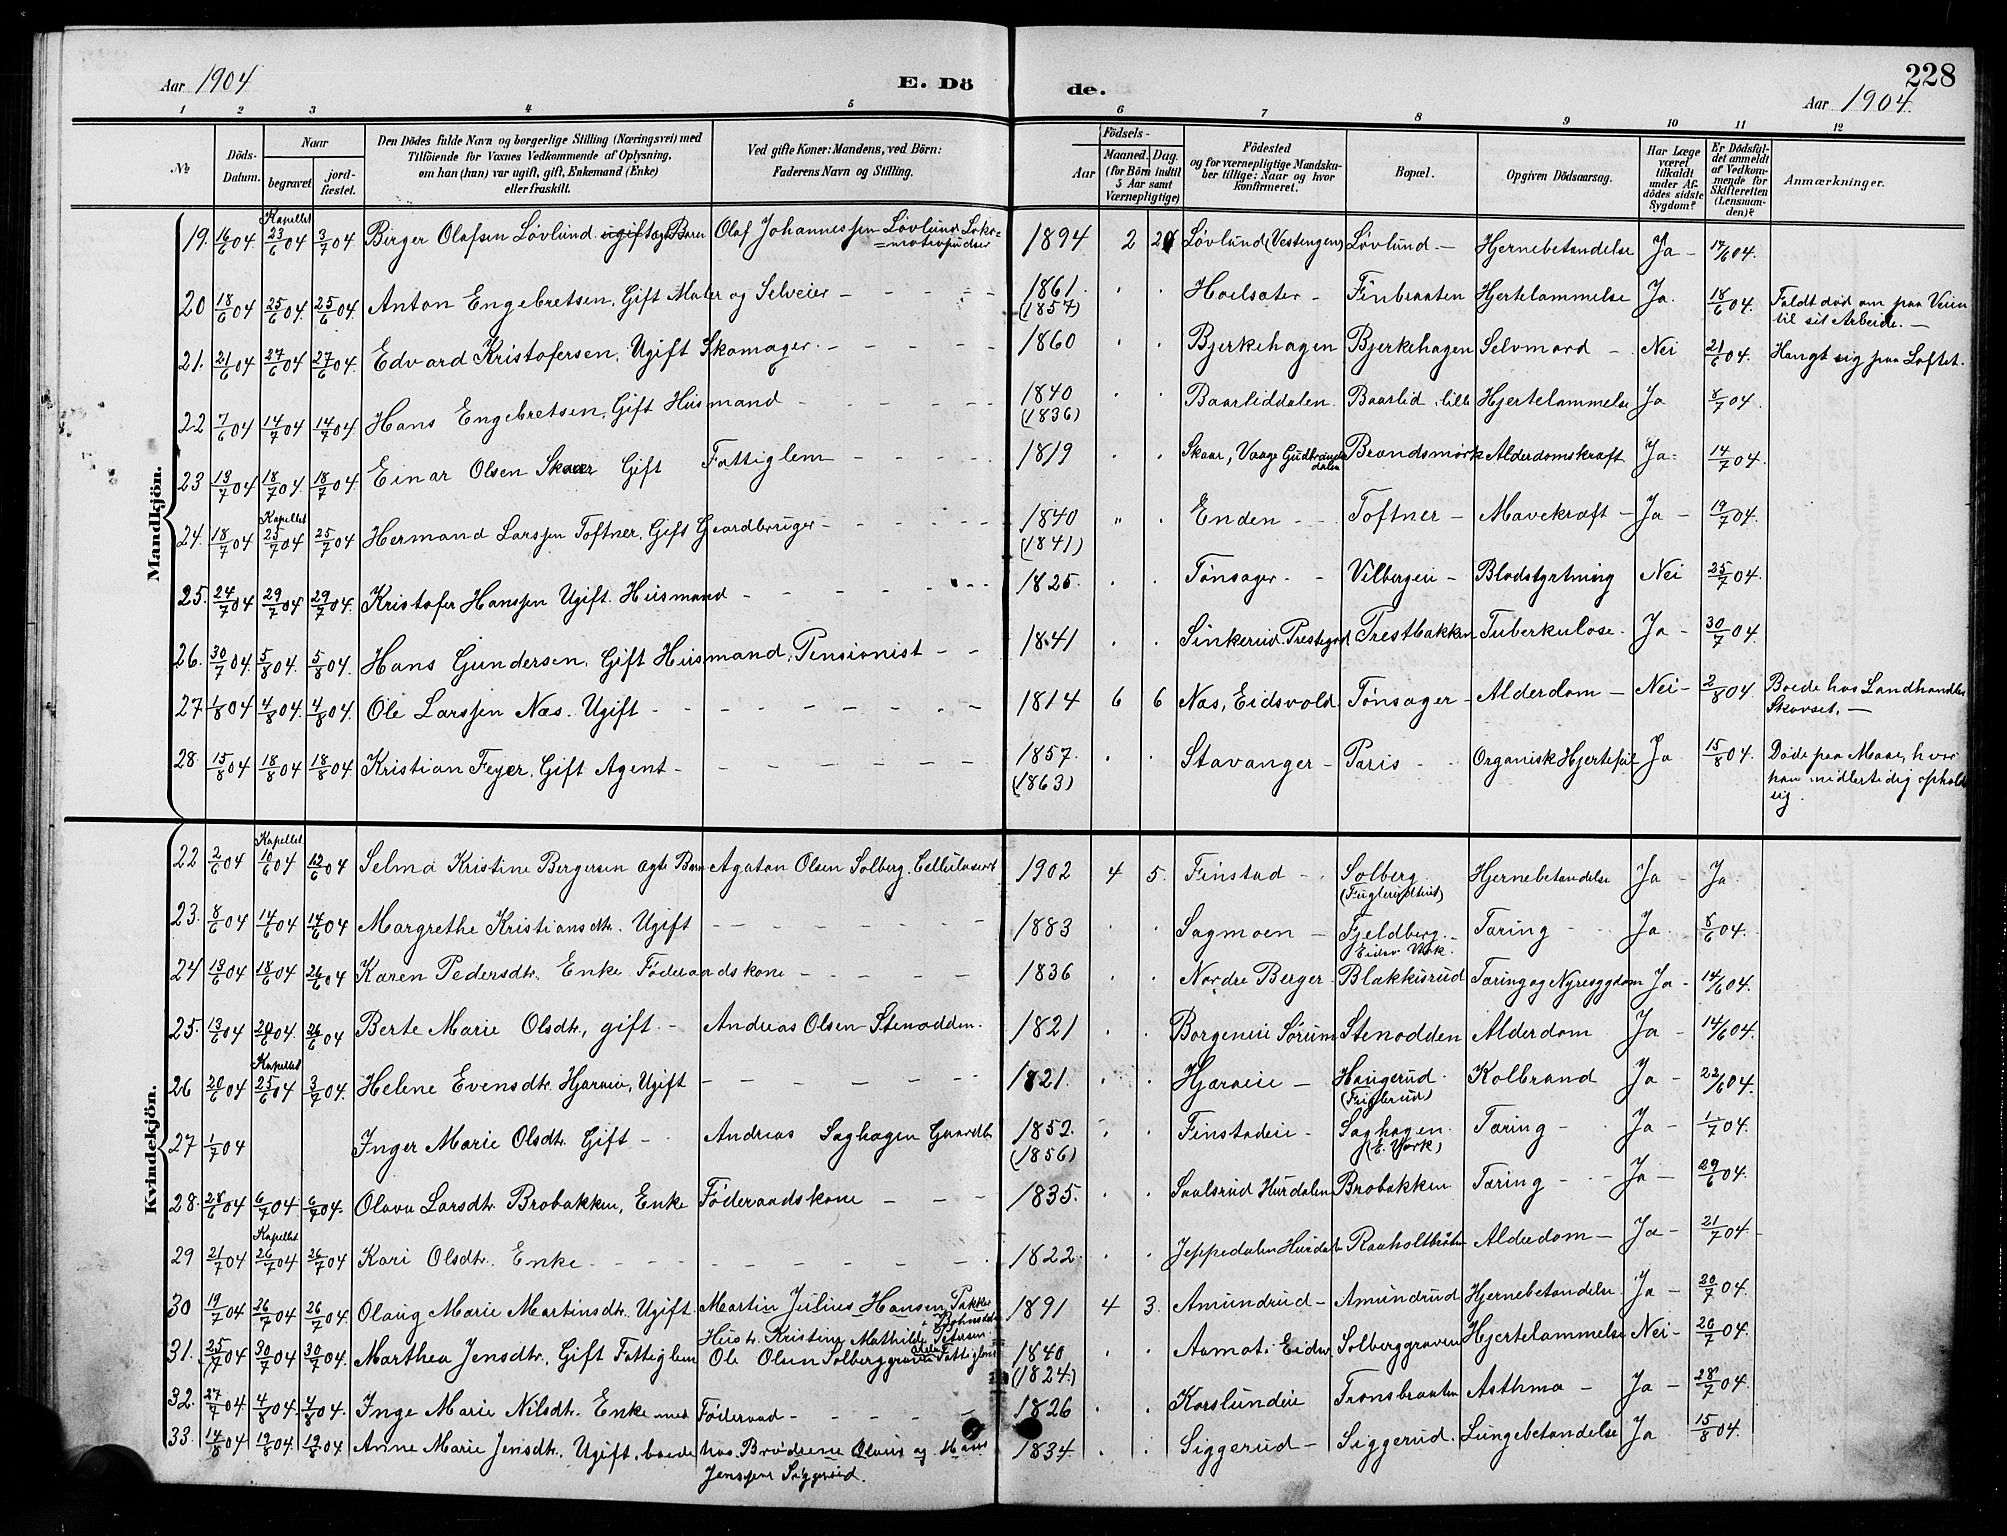 228
Aar 1904
E. Dö
de.
Aar 1904.
1 2 3 4 5 6 7 8 9 10 11 12
№ Döds-Datum. Naar begravet jord-fæstet. Den Dödes fulde Navn og borgerlige Stilling (Næringsvei) med Tilföiende for Voxnes Vedkommende af Oplysning, om han (hun) var ugift, gift, Enkemand (Enke) eller fraskilt. Ved gifte Koner: Mandens, ved Börn: Faderens Navn og Stilling. Födsels- Aar Maaned. Dag. (for Börn indtil 5 Aar samt Værnepligtige) Födested og for værnepligtige Mandskaber tillige: Naar og hvor konfirmeret. Bopæl. Opgiven Dödsaarsag. Har Læge været tilkaldt under Afdödes sidste Sygdom? Er Dödsfaldet anmeldt af Vedkommende for Skifteretten (Lensmanden)? Anmærkninger.
Mandkjön.
Kapellet
19. 16/6 04 23/6 04 3/7 04. Birger Olafsen Løvlund ugift ægte Barn Olaf Johannessen Løvlund Loko- 1894 2 Løvlund (Vestengen) Løvlund - Hjernebetændelse Ja - 17/6 04.
=motivpudser
20 18/6 04 25/6 04. 25/6 04. Anton Engebretsen, Gift Maler og Selveier - 1861. Hoelsæter - Finbraaten Hjertelammelse Ja. 18/6 04. Faldt død om paa Veien
(1857) til sit Arbeide. -
21. 21/6 04 27/6 04 27/6 04. Edvard Kristofersen, Ugift Skomager. 1860 Bjerkehagen Bjerkehagen Selvmord - Nei 21/6 04. Hængt sig paa Loftet.
22 7/6 04 14/7 04 14/7 04 Hans Engebretsen, Gift Husmand - 1840 Baarliddalen. Baarlid, lille Hjertelammelse Ja 8/7 04.
(1836)
23 13/7 04 18/7 04. 18/7 04. Einar Olsen Skaar Gift Fattiglem - 1819 Skaar, Vaage Gudbrands Brandsmørk Alderdomskræft Ja - 14/7 04.
dalen
Kapellet
24. 18/7 04 25/7 04 25/7 04 Hermand Larssen Toftner, Gift Gaardbruger - 1840 Enden - Toftner - Mavekræft - Ja - 19/7 04.
(1841)
25. 24/7 04 29/7 04 29/7 04. Kristofer Hanssen Ugift. Husmand - 1825. Tønsager - Vilbergeie - Blodstyrtning Nei 25/7 04.
26. 30/7 04. 5/8 04. 5/8 04. Hans Gundersen, Gift Husmand, Pensionist - 1841 Sinkerud Prestegrd Prestbakken Tuberkulose. Ja - 30/7 04.
27 1/8 04 4/8 04. 4/8 04. Ole Larssen Næs. Ugift - 1814 6 6 Næs, Eidsvold. Tønsager - Alderdom - Nei - 2/8 04 Boede hos Landhandler
Skovset. -
28. 15/8 04 18/8 04 18/8 04 Kristian Feyer, Gift Agent - 1857. Stavanger - Paris - Organisk Hjertefeil Ja 15/8 04. Døde paa Moe, hvor
(1863) han midlertidig opholdt
sig.
Kvindekjön.
Kapellet
22 2/6 04 10/6 04 12/6 04 Selma Kristine Bergersen ægte Barn Agaton Olsen Solberg, Cellulosearb 1902 4 5. Finstad - Solberg Hjernebetændelse Ja - Ja
23. 8/6 04 14/6 04 14/6 04 Margrethe Kristiansdtr. Ugift - 1883 Sagmoen - Fjeldberg - Tæring - Ja. 8/6 04.
Eidsv Værk.
24 13/6 04 18/6 04 26/6 04 Karen Pedersdtr. Enke Føderaadskone - 1836 Nordre Berger Blakkisrud Tæring og Nyresygdom Ja - 14/6 04.
25. 13/6 04 20/6 04. 26/6 04 Berte Marie Olsdtr, gift. - Andreas Olsen Stenodden. 1821 Borgeneie Sørum Stenodden Alderdom Ja - 14/6 04.
Kapellet
26 20/6 04 25/6 04 3/7 04. Helene Evensdtr Hjæraeie, Ugift - 1821. Hjæraeie - Haugerud Kolbrand Ja - 22/6 04.
27 1/7 04 Inger Marie Olsdtr. Gift - Andreas Saghagen Gaardb 1852. Finstadeie - Saghagen. Tæring - Ja - 1/7 04.
(1856) (E. Værk)
28. 28/6 04 6/7 04. 6/7 04. Olava Larsdtr Brobakken, Enke Føderaadskone - 1835. Saalsrud Hurdalen Brobakken Tæring - Ja - 29/6 04.
Kapellet
29 21/7 04 26/7 04 26/7 04 Kari Olsdtr. Enke - 1822 Jeppedalen Hurdalen Raaholtbråten Alderdom - Ja - 21/7 04.
30 19/7 04 26/7 04 26/7 04 Olaug Marie Martinsdtr. Ugift. Martin Julius Hansen 1891 4 3. Amundrud - Amundrud Hjernebetændelse Ja - 20/7 04.
Hustr. Kristine Mathilde Petersen
31. 25/7 04 30/7 04 30/7 04 Marthea Jensdtr, Gift Fattiglem Ole Olsen Solberggraven Fattiglem 1840 Aamot i Eidsv. Solberggraven Hjertelammelse Nei - 20/7 04.
(1824)
32. 27/7 04 4/8 04. 4/8 04. Inge Marie Nilsdtr. Enke med Føderaad - 1826 Korslundeie Tronsbraaten Asthma - Ja - 28/7 04.
33. 14/8 04 19/8 04. 19/8 04 Anne Marie Jensdtr, Ugift, boede hos Brødrene Olaus og Hans 1834. Siggerud - Siggerud. Lungebetændelse Ja 15/8 04.
Jenssen Siggerud.